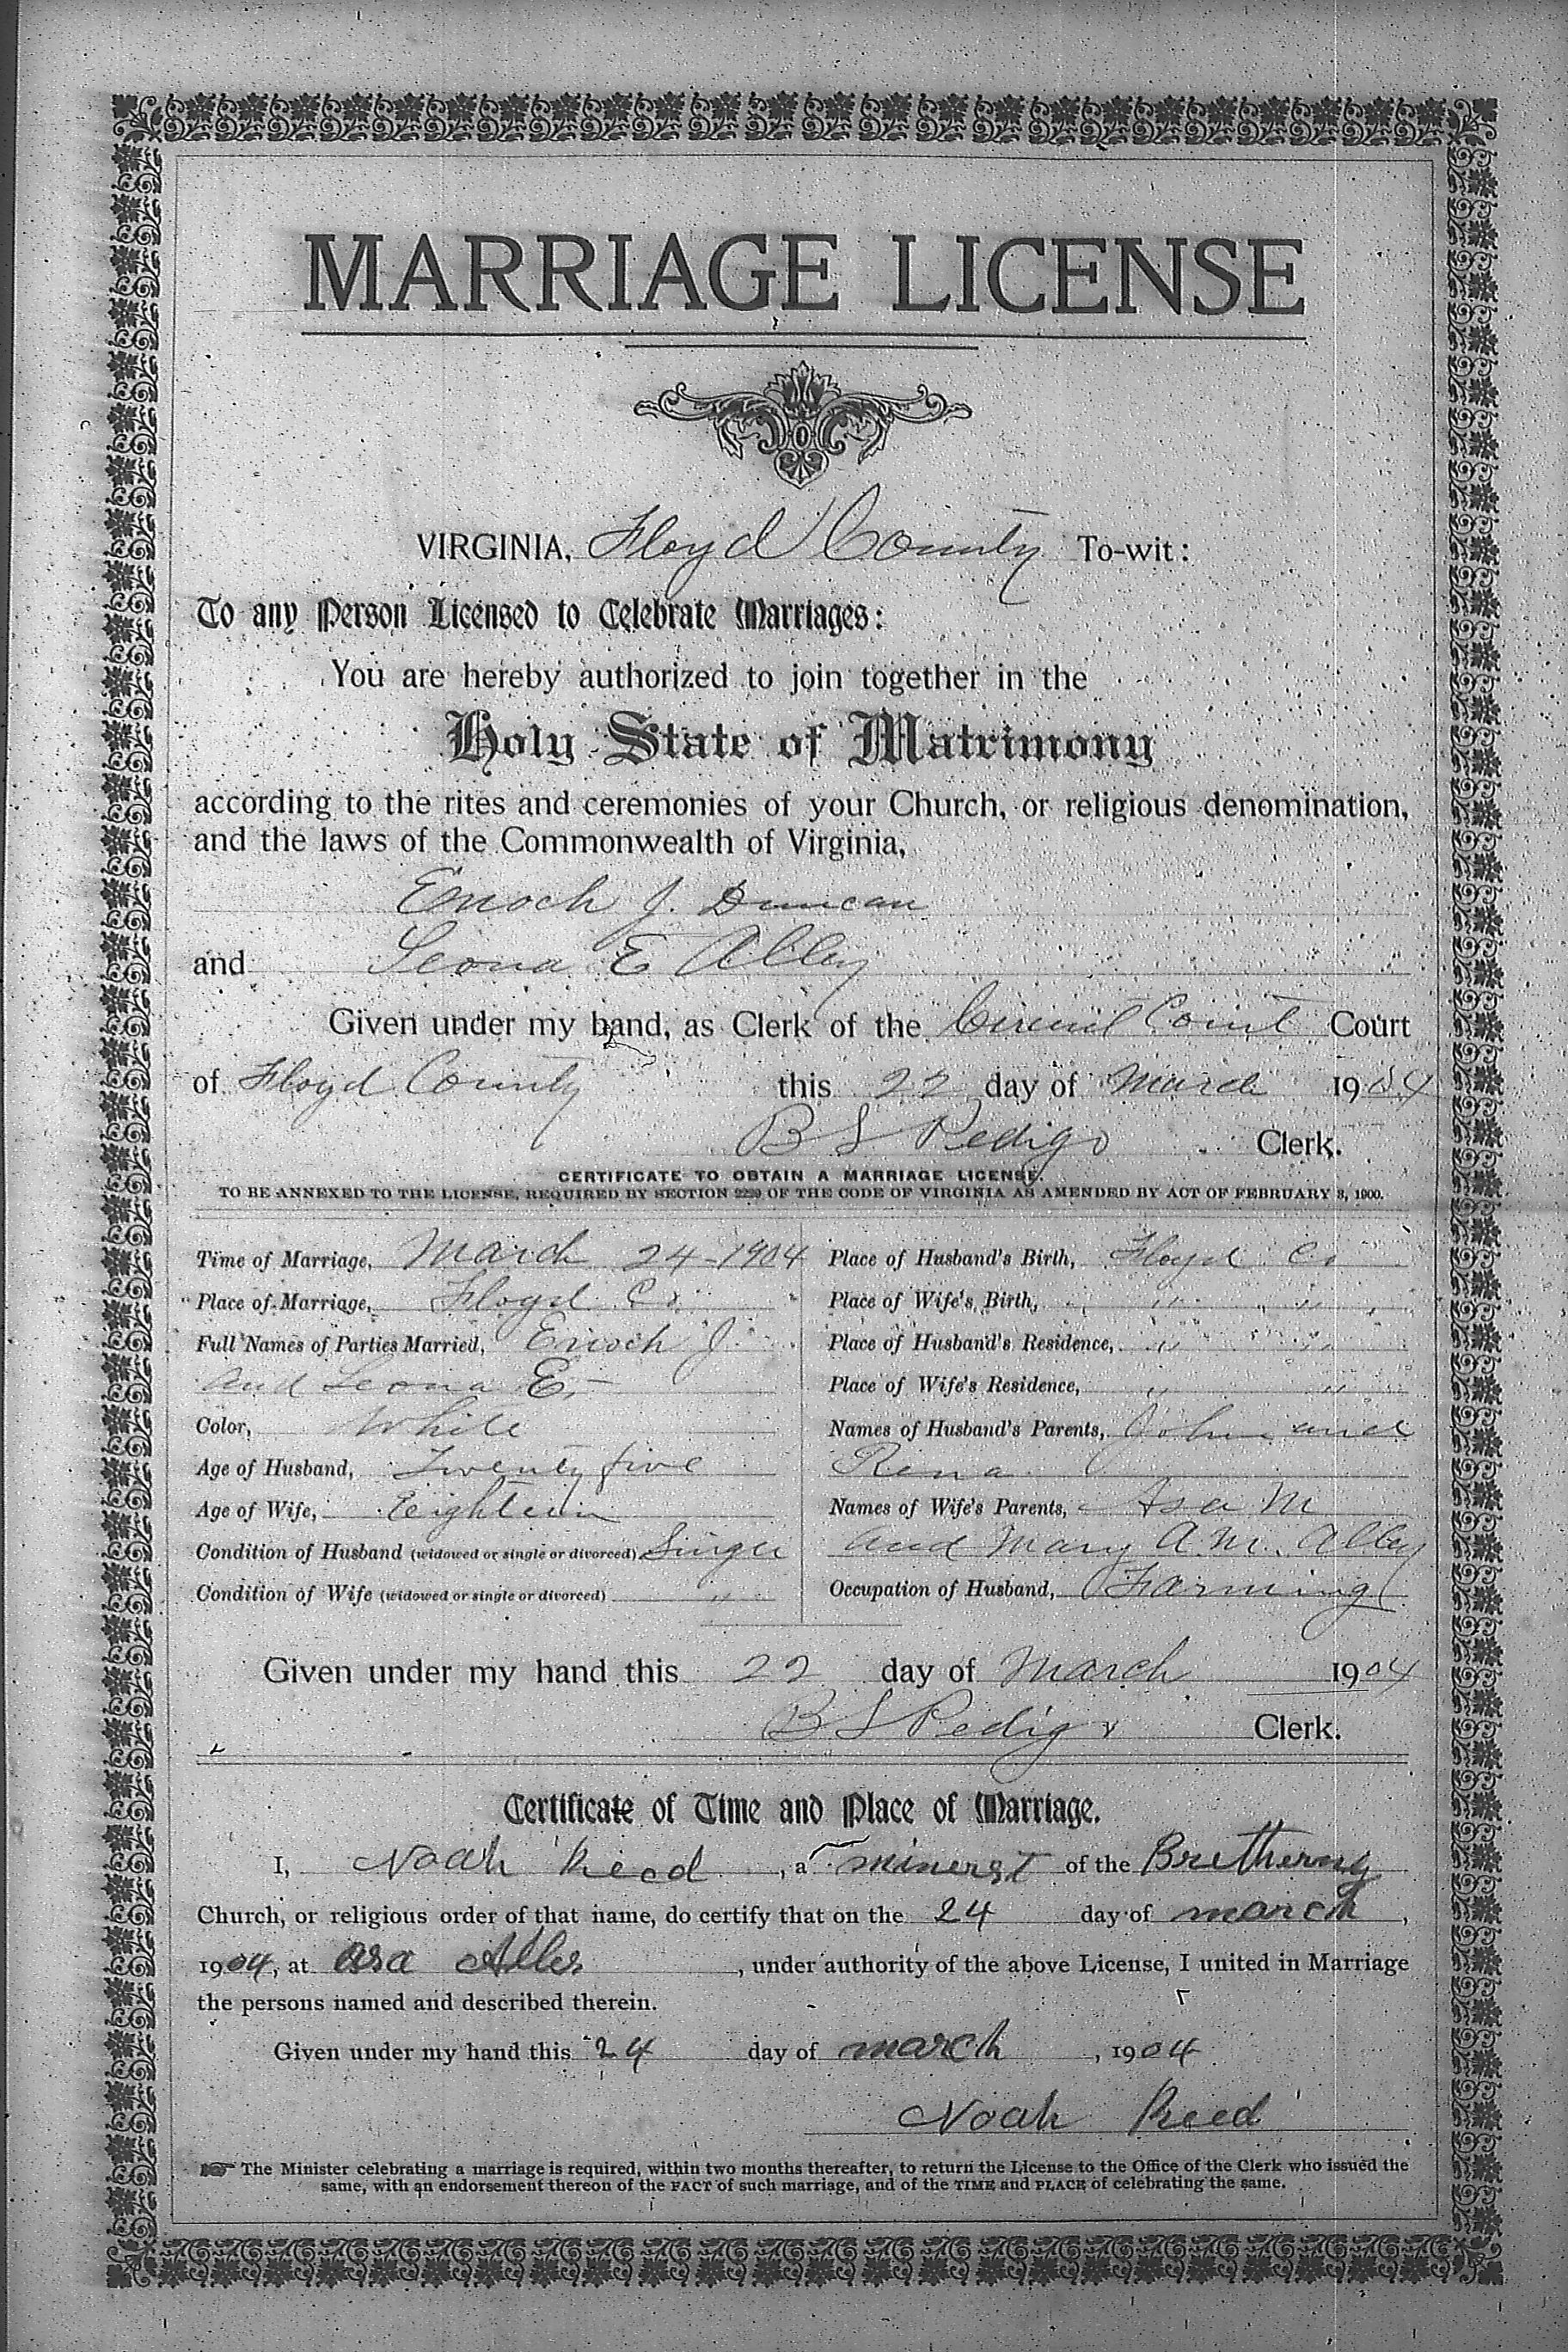 MARRIAGE LICENSE
VIRGINIA, Floyd County To-wit:
To any Person Licensed to Celebrate Marriages:
You are hereby authorized to join together in the
Holy State of Matrimony
according to the rites and ceremonies of your Church, or religious denomination,
and the laws of the Commonwealth of Virginia,
Enoch J. Duncan
and Leona E Alley
Given under my hand, as Clerk of the Circuit Court Court
of Floyd County this 22 day of March 1904
B S Pedigo Clerk.
CERTIFICATE TO OBTAIN A MARRIAGE LICENSE.
TO BE ANNEXED TO THE LICENSE, REQUIRED BY SECTION 2229 OF THE CODE OF VIRGINIA AS AMENDED BY ACT OF FEBRUARY 3, 1900.
Time of Marriage, March 24-1904
Place of Marriage, Floyd Co.
Full Names of Parties Married, Enoch J.
and Leona E.-
Color, White
Age of Husband, Twenty five
Age of Wife, Eighteen
Condition of Husband (widowed or single or divorced) Single
Condition of Wife (widowed or single or divorced) "
Place of Husband's Birth, Floyd Co
Place of Wife's Birth, " "
Place of Husband's Residence, " "
Place of Wife's Residence, " "
Names of Husband's Parents, John and
Rena
Names of Wife's Parents, Asa M
and Mary A. M. Alley
Occupation of Husband, Farming
Given under my hand this 22 day of March 1904
B S Pedigo Clerk.
Certificate of Time and Place of Marriage.
I, Noah Reed, a minerst of the Bretherns
Church, or religious order of that name, do certify that on the 24 day of march,
1904, at asa Alles, under authority of the above License, I united in Marriage
the persons named and described therein.
Given under my hand this 24 day of march, 1904
Noah Reed
☞ The Minister celebrating a marriage is required, within two months thereafter, to return the License to the Office of the Clerk who issued the
same, with an endorsement thereon of the FACT of such marriage, and of the TIME and PLACE of celebrating the same.